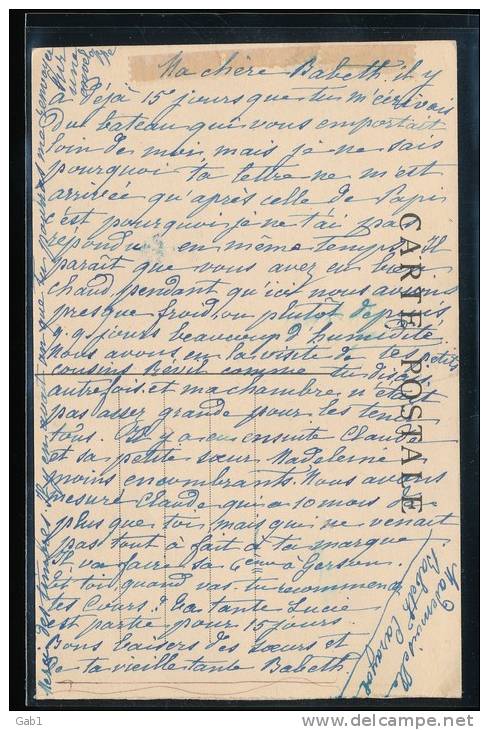 Ma chère Babeth, il y
a déjà 15 jours que tu m'écrivais
du bateau qui vous emportait
loin de moi, mais je ne sais
pourquoi ta lettre ne m'est
arrivée qu'après celle de Papi
c'est pourquoi je ne t'ai pas
répondu en même temps. Il
paraît que vous avez eu bien
chaud, pendant qu'ici nous avions
presque froid, ou plutôt depuis
8. 9. jours beaucoup d'humidité
Nous avons eu la visite de tes petits
cousins Révil comme tu disais
autrefois, et ma chambre n'était
pas assez grande pour les tenir
tous. Il y a eu ensuite Claude
et sa petite sœur Madeleine
moins encombrants. Nous avons
mesuré Claude qui a 10 mois de
plus que toi mais qui ne venait
pas tout à fait à ta marque
Il va faire sa 6ème à Gerson
et toi quand vas-tu recommencer
tes Cours? Ta tante Lucie
est partie pour 15 jours.
Bons baisers des sœurs et
de ta vieille tante Babeth.
Merci des timbres. Il y en avait un que tu pourras me renvoyer
sur
une
enveloppe
Mademoiselle
Babeth
CARTE POSTALE
Gab1
http://www.delcampe.net